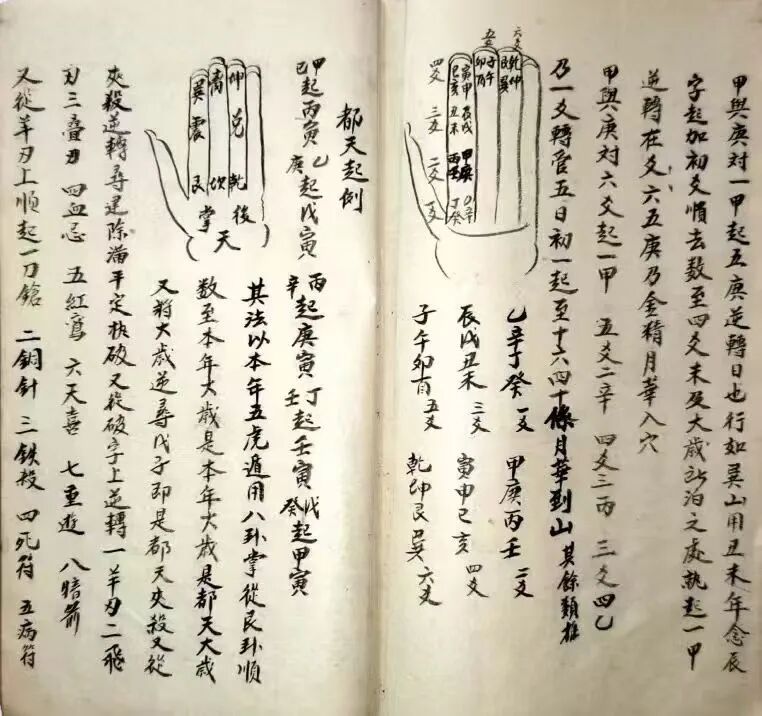 甲與庚対一甲起五庚逆轉日也行如巽山用丑未年念辰
字起加初爻順去数至四爻未及大歲所泊之處就起一甲
逆轉在爻六五庚乃金精月華入穴
甲與庚対六爻起一甲 五爻二辛 四爻三丙 三爻四乙
乃一爻轉管五日初一起至十六四十條月華到山 其餘類推
六爻
五爻
四爻 三爻 二爻 一爻
乾坤
艮巽
子午
卯酉
寅申 辰戌 甲庚 乙辛
巳亥 丑未 丙壬 丁癸
乙辛丁癸 一爻 甲庚丙壬 二爻
辰戌丑未 三爻 寅申巳亥 四爻
子午卯酉 五爻 乾坤艮巽 六爻
都天起例
甲己起丙寅 乙庚起戊寅 丙辛起庚寅 丁壬起壬寅 戊癸起甲寅
坤 兑 乾
離 坎
巽 震 艮
後天掌
其法以本年五虎遁用八卦掌從艮卦順
数至本年大歲是本年大歲是都天大歲
又將大歲逆尋戊子即是都天夾殺又從
夾殺逆轉尋建除滿平定执破又從破字上逆轉一羊刃二飛
刃三叠刃 四血忌 五紅鸞 六天喜 七重遊 八暗箭
又從羊刃上順起一刀鎗 二銅針 三铁投 四死符 五病符